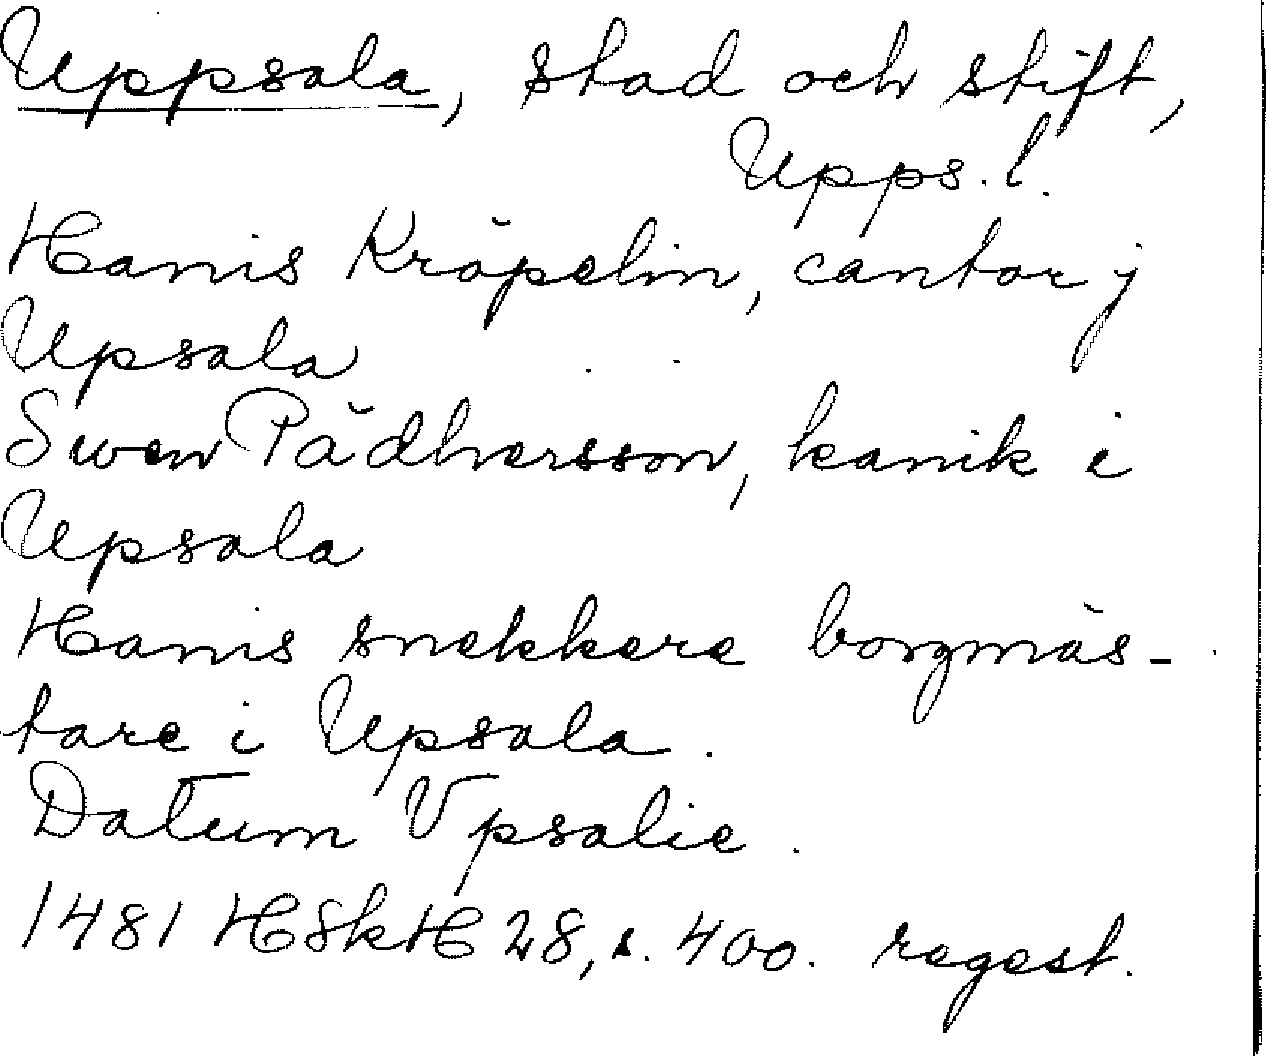 Uppsala, stad och stift,
Upps. l.
Hanis Kröpelin, cantor j
Upsala
Swen Pädhersson, kanik i
Upsala
Hanis snekkere borgmäs-
tare i Upsala.
Datum Vpsalie.
1481 HSkH 28, s. 400. regest.